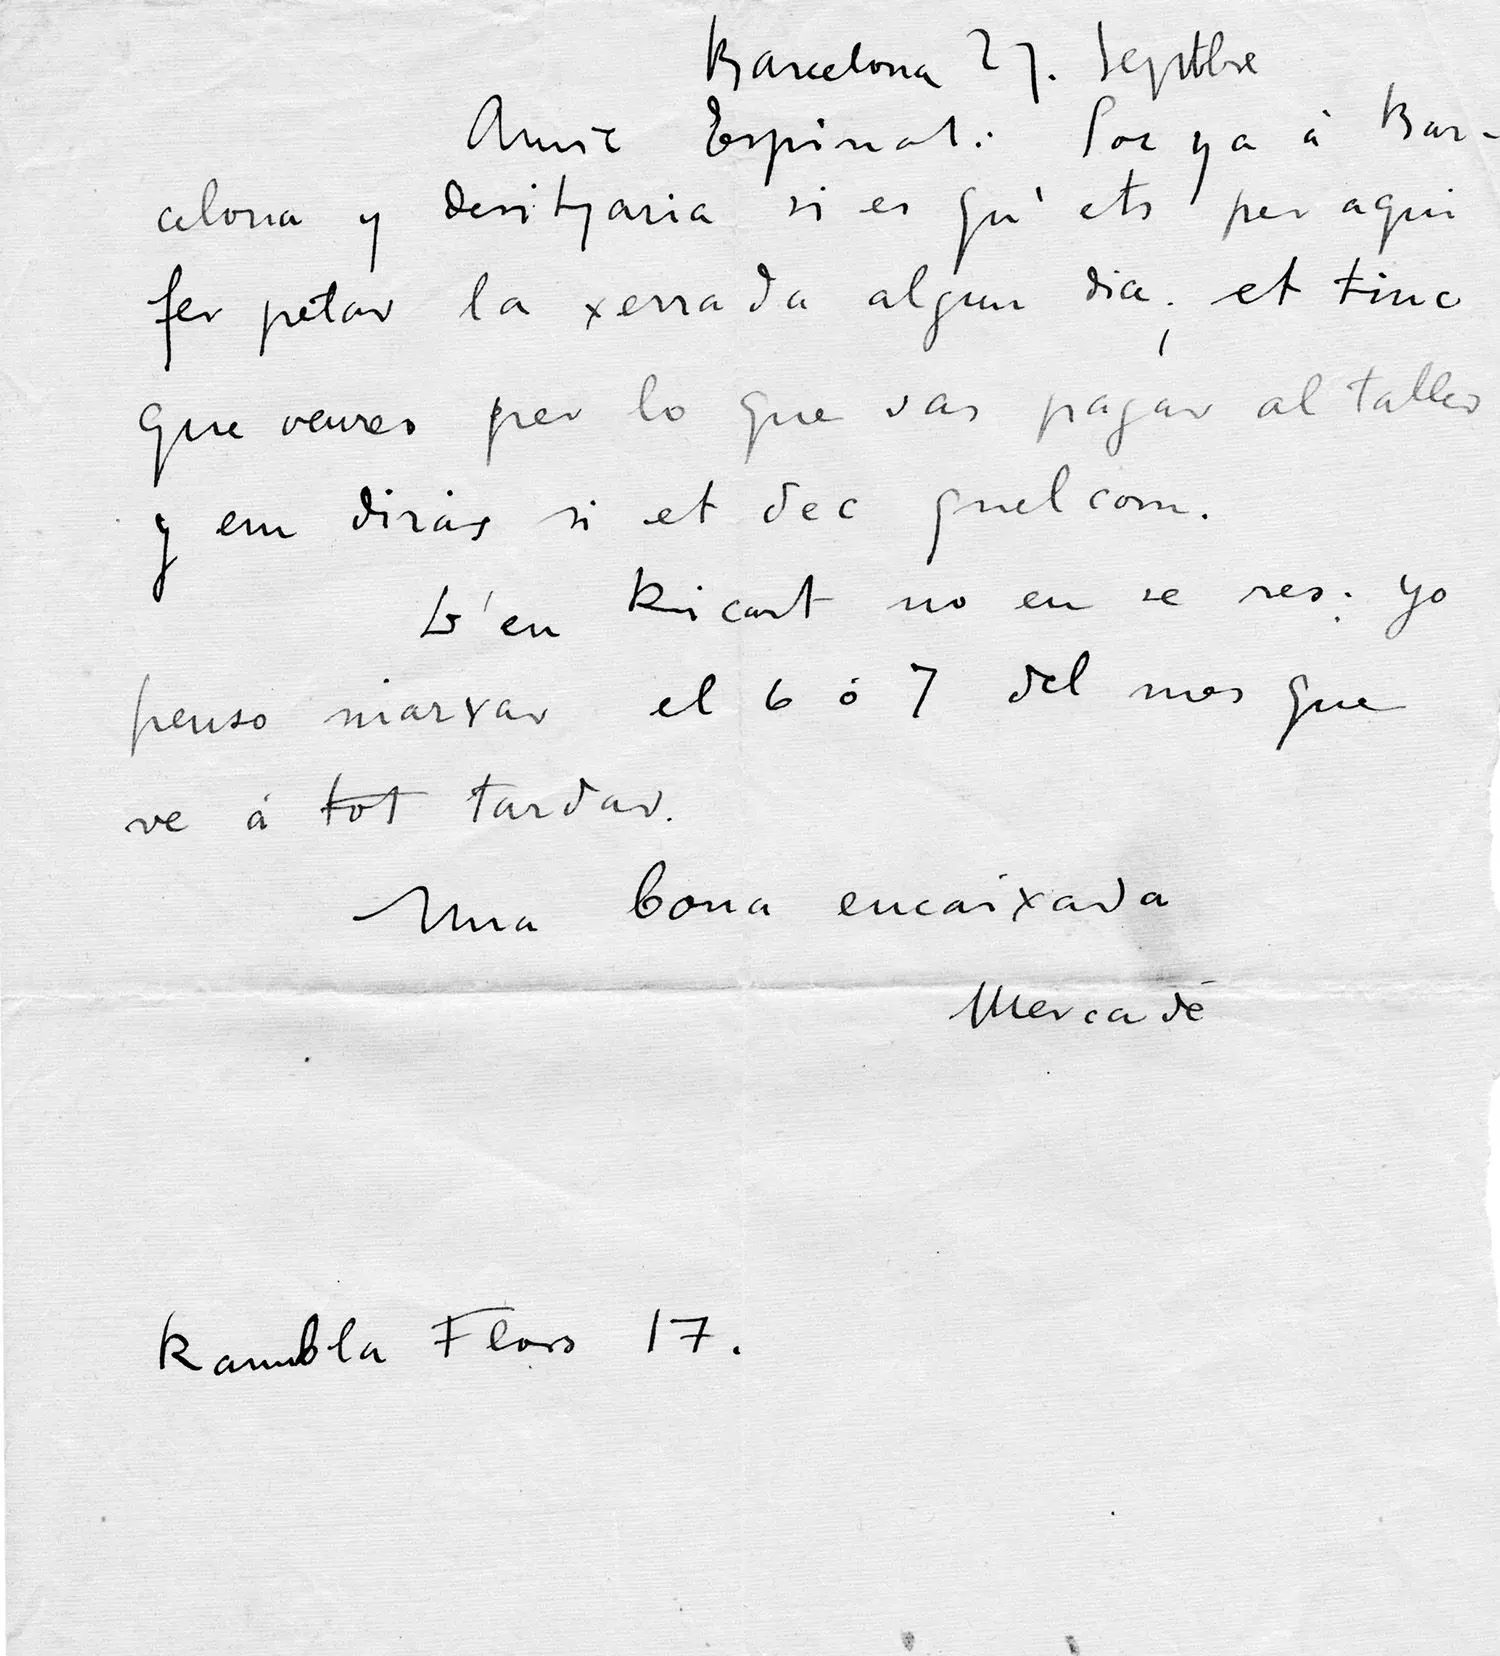 Barcelona 27. Septbre
Amic Espinal: Soc ya á Bar-
celona y desitjaria si es qu' ets per aqui
fer petar la xerrada algun dia; et tinc
que veures per lo que vas pagár al taller
y em dirás si et dec quelcom.
D'en Ricart no en se res; yo
penso marxar el 6 ó 7 del mes que
ve á tot tardar.
Una bona encaixada
Mercadé
Rambla Flors 17.